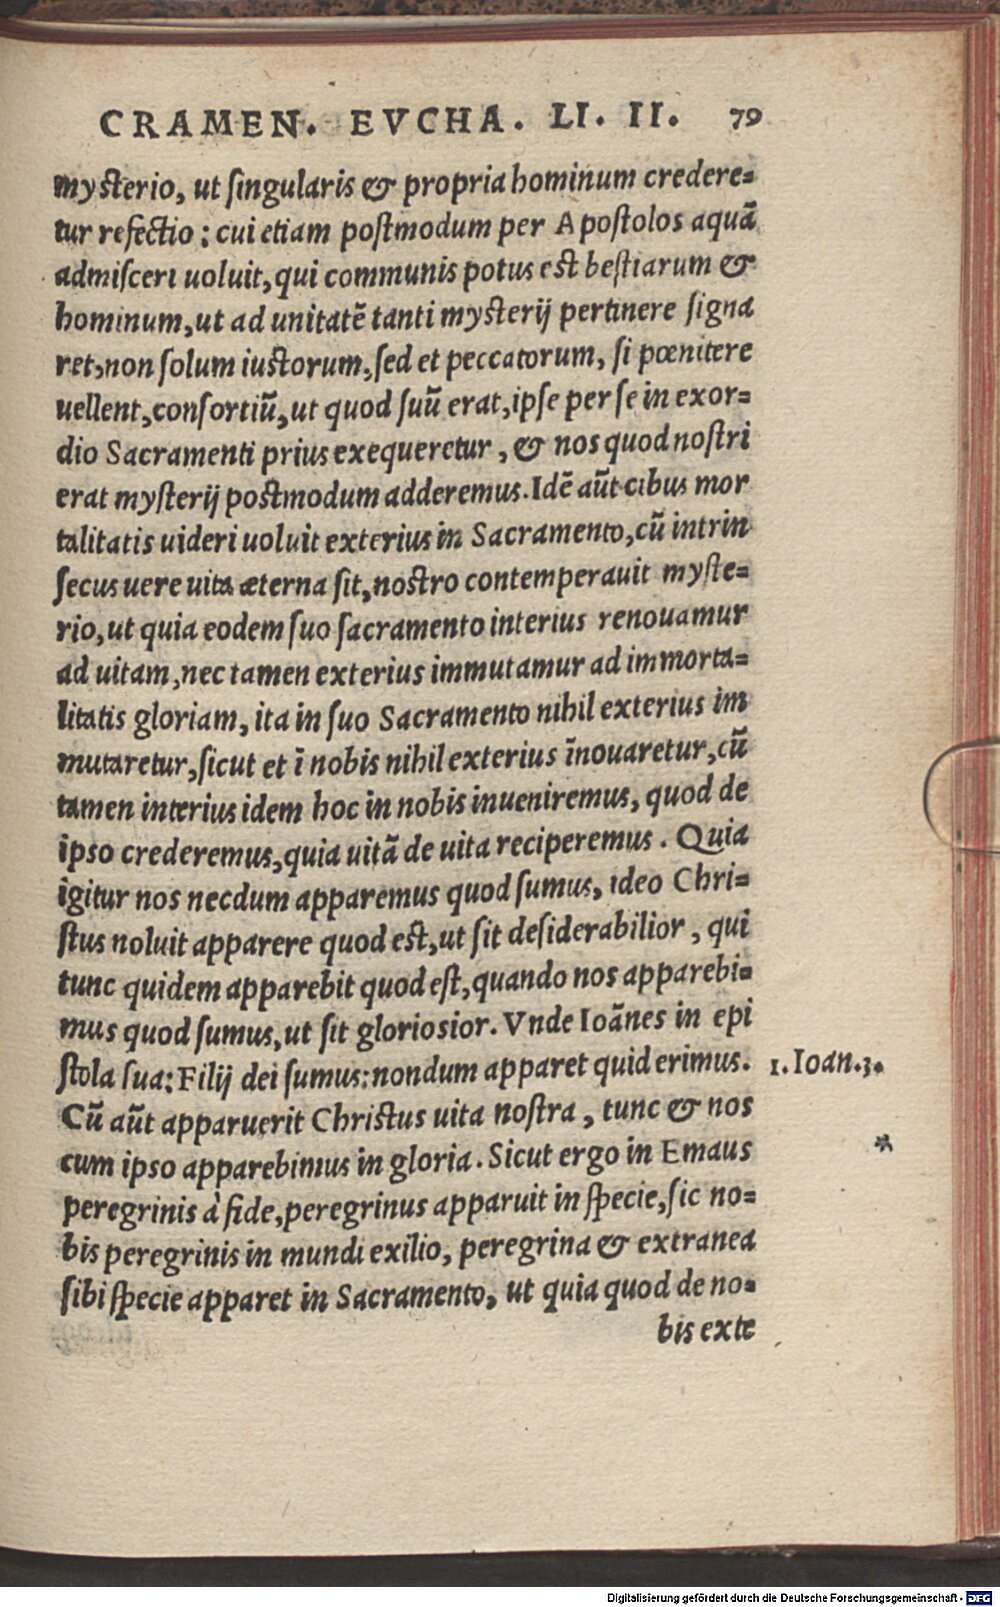 CRAMEN. EVCHA. LI. II. 79
mysterio, ut singularis & propria hominum credere=
tur refectio: cui etiam postmodum per Apostolos aquā
admisceri uoluit, qui communis potus est bestiarum &
hominum, ut ad unitatē tanti mysterij pertinere signa
ret, non solum iustorum, sed et peccatorum, si pœnitere
uellent, consortiū, ut quod suū erat, ipse per se in exor=
dio Sacramenti prius exequeretur, & nos quod nostri
erat mysterij postmodum adderemus. Idē aūt cibus mor
talitatis uideri uoluit exterius in Sacramento, cū intrin
secus uere uita æterna sit, nostro contemperauit myste=
rio, ut quia eodem suo sacramento interius renouamur
ad uitam, nec tamen exterius immutamur ad immorta=
litatis gloriam, ita in suo Sacramento nihil exterius im
mutaretur, sicut et ī nobis nihil exterius īnouaretur, cū
tamen interius idem hoc in nobis inueniremus, quod de
ipso crederemus, quia uitā de uita reciperemus. Quia
igitur nos necdum apparemus quod sumus, ideo Chri=
stus noluit apparere quod est, ut sit desiderabilior, qui
tunc quidem apparebit quod est, quando nos apparebi=
mus quod sumus, ut sit gloriosior. Vnde Ioānes in epi
stola sua: Filij dei sumus: nondum apparet quid erimus.
1. Ioan. 3.
Cū aūt apparuerit Christus uita nostra, tunc & nos
cum ipso apparebimus in gloria. Sicut ergo in Emaus
peregrinis à fide, peregrinus apparuit in specie, sic no=
bis peregrinis in mundi exilio, peregrina & extranea
sibi specie apparet in Sacramento, ut quia quod de no=
bis exte
Digitalisierung gefördert durch die Deutsche Forschungsgemeinschaft - DFG